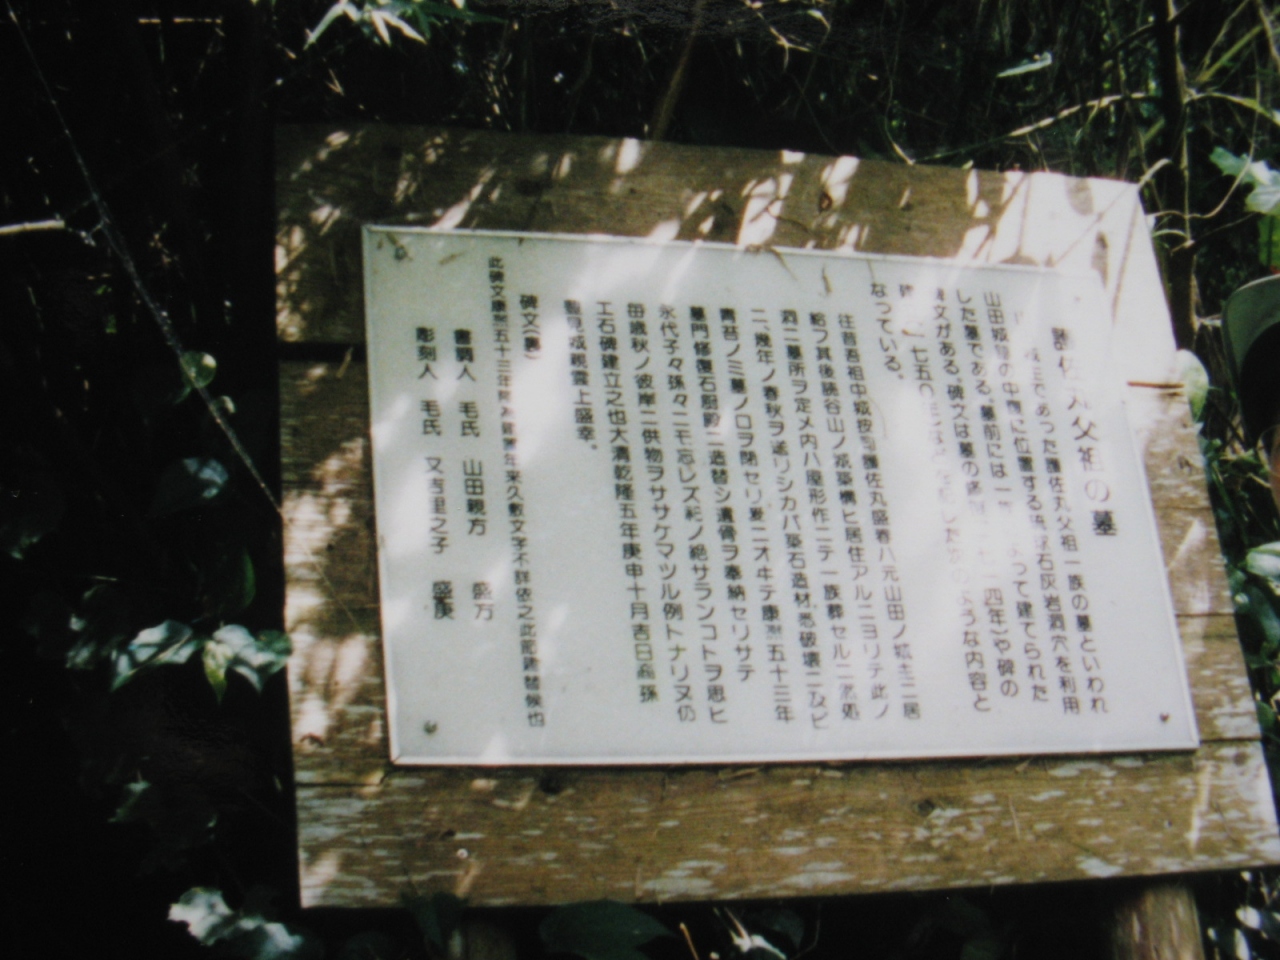 護佐丸父祖の墓
であった護佐丸父祖一族の墓といわれ
山田城 の中腹に位置する 石灰岩洞穴を利用
した墓である。墓前には一 よって建てられた
碑文がある。碑文は墓の 四年)や碑の
建 一七五〇 のような内容と
なっている。
往昔吾祖中城按司護佐丸盛春ハ元山田ノ城主ニ居
給フ其後読谷山ノ城築構ヒ居住アルニヨリテ此ノ
洞ニ墓所ヲ定メ内ハ屋形作ニテ一族葬セルニ 処
ニ、幾年ノ春秋ヲ送リシカバ築石造材悉破壊ニ及ビ
青苔ノミ墓ノ口ヲ閉セリ是ニオヰテ康熙五十三年
墓門修復石厨殿ニ造替シ遺骨ヲ奉納セリサテ
永代子々孫々ニモ忘レズ祀ノ絶サランコトヲ思ヒ
毎歳秋ノ彼岸ニ供物ヲササケマツル例トナリヌ仍
エ石碑建立之也大清乾隆五年庚申十月吉日 孫
毛氏 親雲上盛幸。
碑文(裏)
此碑文康熙五十三年 年来久敷文字不詳依之此節建替候也
書調人 毛氏 山田親方 盛方
彫刻人 毛氏 又吉里之子 盛庚